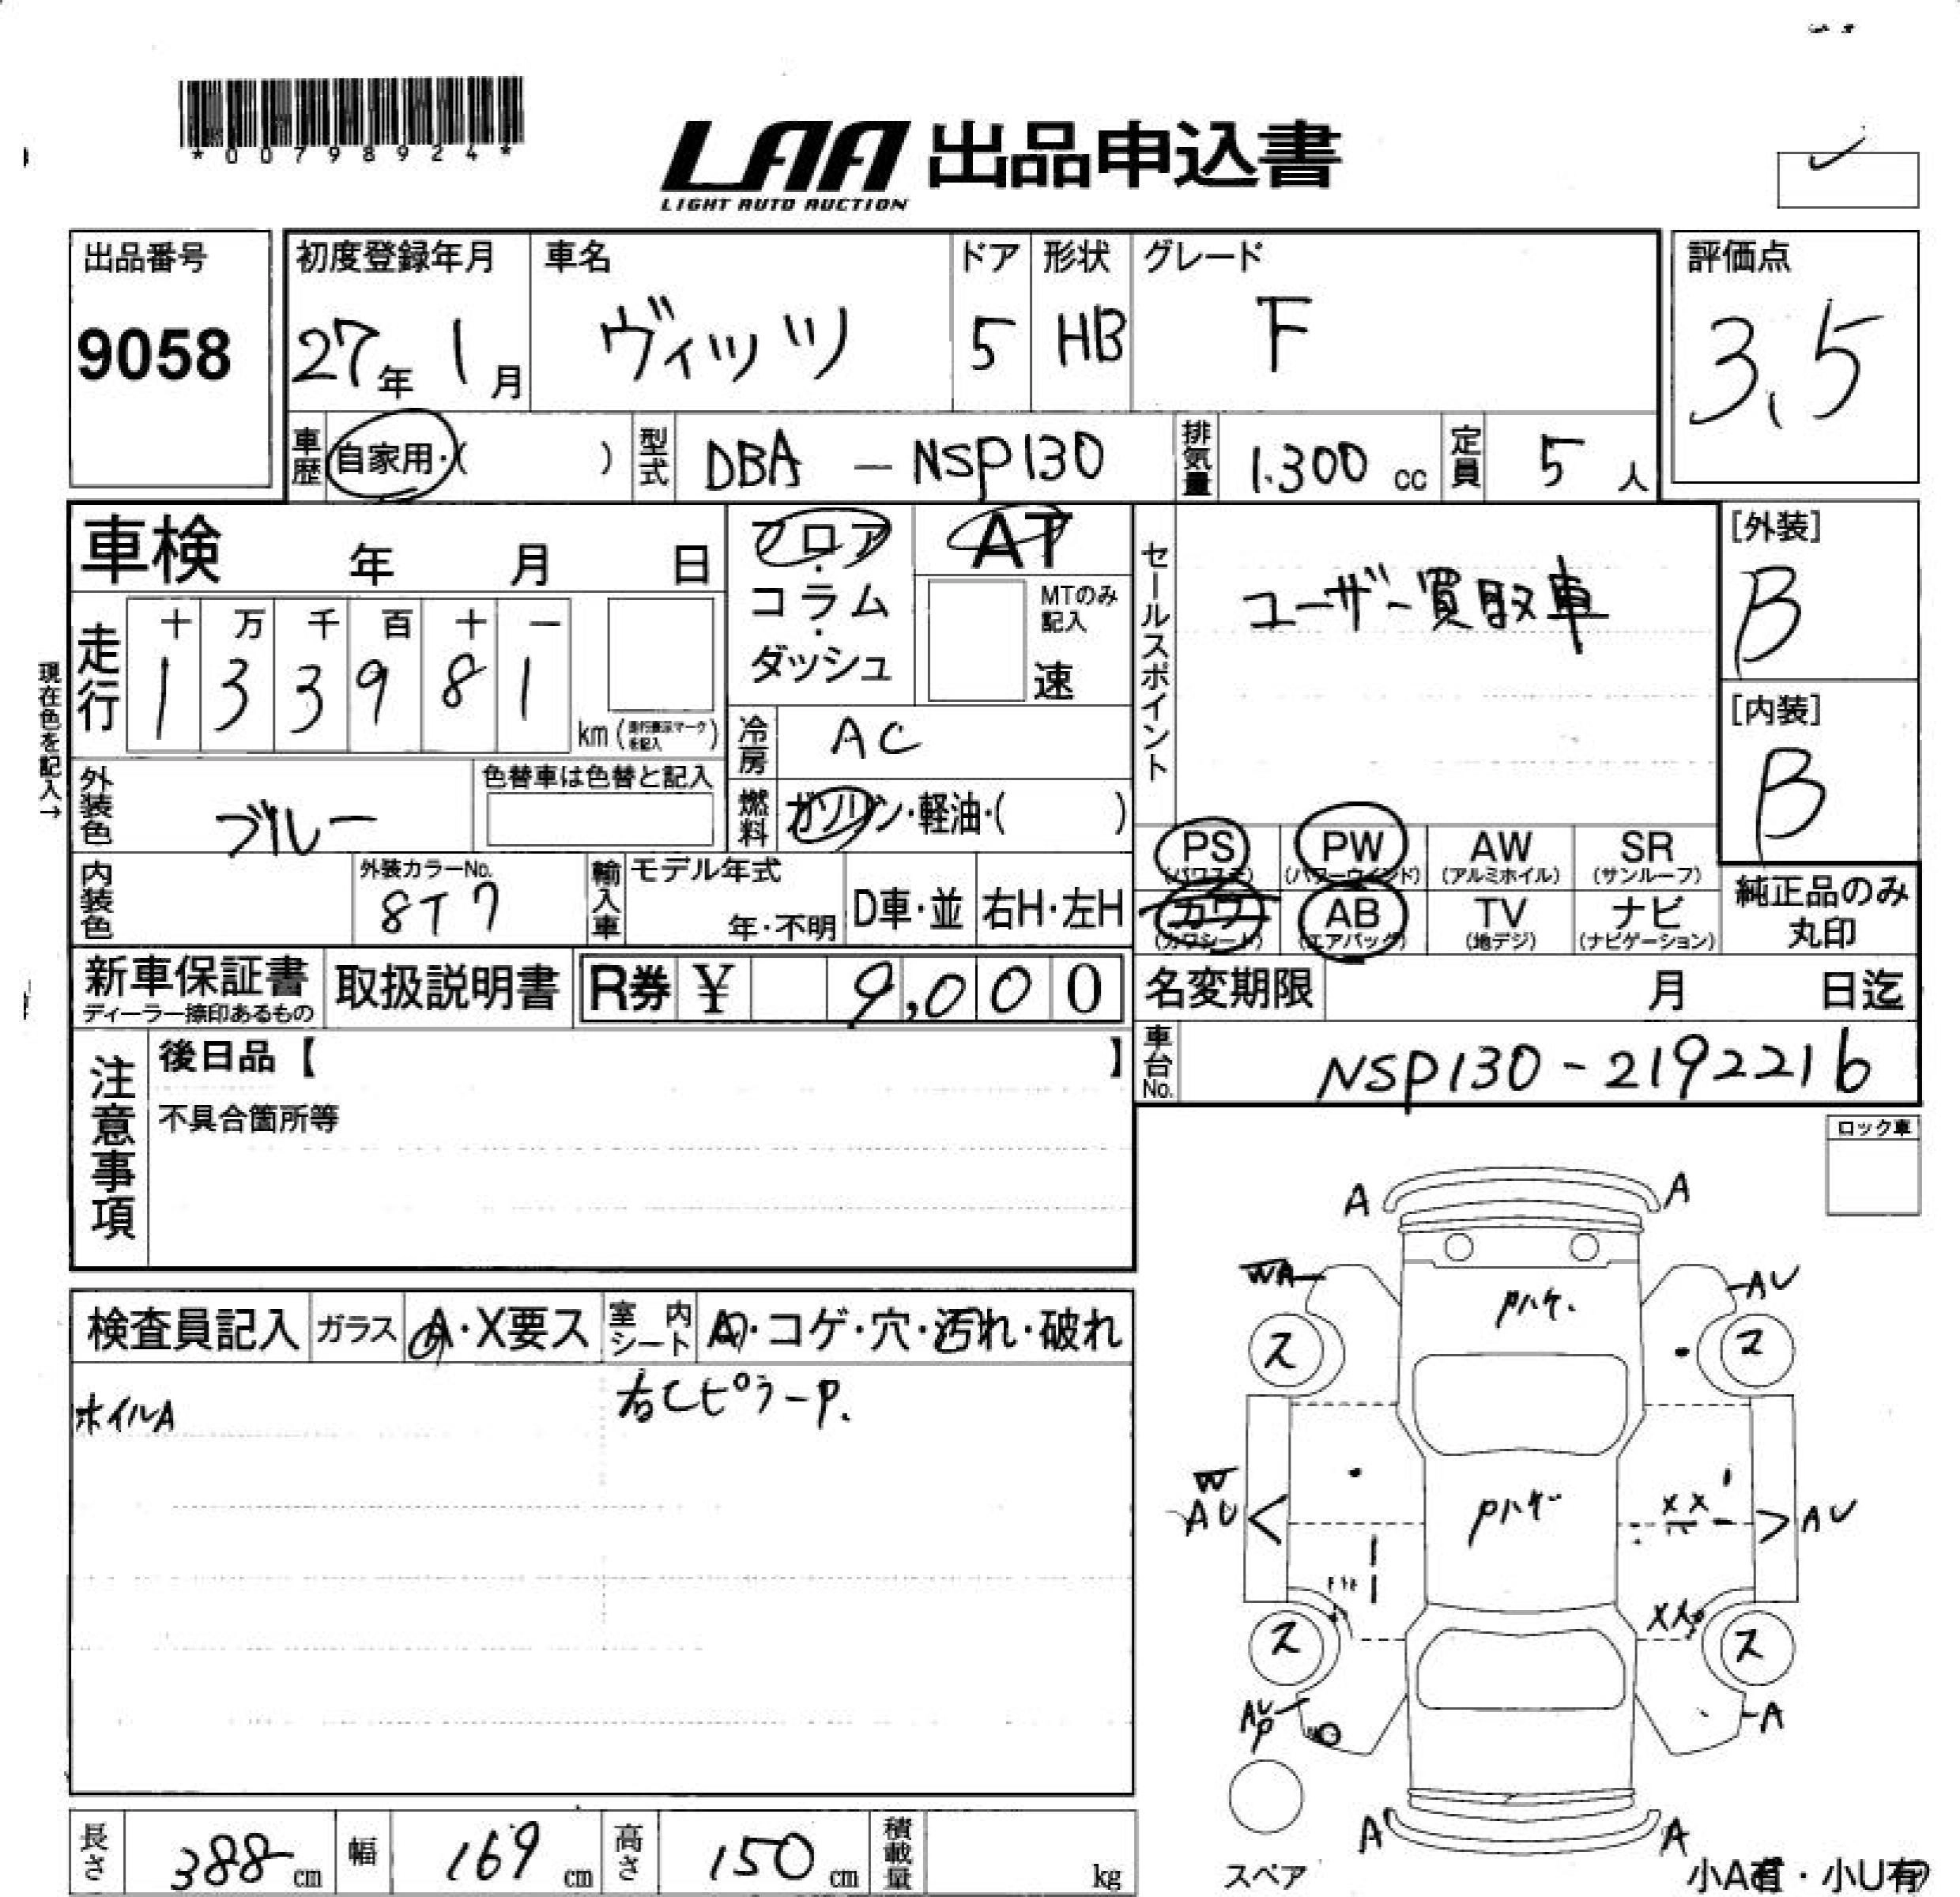 *00798924*
LAA 出品申込書
LIGHT AUTO AUCTION
出品番号
9058
初度登録年月
27年 1月
車名
ヴィッツ
ドア
5
形状
HB
グレード
F
評価点
3.5
車歴 自家用・( )
型式 DBA - NSP130
排気量 1.300 cc
定員 5 人
車検 年 月 日
フロア・コラム・ダッシュ
AT
MTのみ記入
速
セールスポイント
ユーザー買取車
[外装]
B
[内装]
B
現在色を記入→
走行
十 万 千 百 十 一
1 3 3 9 8 1
km (走行表示マークを記入)
冷房 AC
外装色 ブルー
色替車は色替と記入
燃料 ガソリン・軽油・( )
PS (パワステ)
PW (パワーウィンド)
AW (アルミホイル)
SR (サンルーフ)
カワ (カワシート)
AB (エアバッグ)
TV (地デジ)
ナビ (ナビゲーション)
純正品のみ丸印
内装色
外装カラーNo.
8T7
輸入車
モデル年式
年・不明
D車・並
右H・左H
新車保証書
ディーラー捺印あるもの
取扱説明書
R券 ¥ 9,000
名変期限 月 日迄
車台No. NSP130-2192216
注意事項
後日品【 】
不具合箇所等
ロック車
検査員記入
ガラス A・X要ス
室内シート A・コゲ・穴・汚れ・破れ
ホイルA
右CピラーP.
A A
WA AU
Pハゲ.
ス ス
W
AU
Pハゲ
XX
AU
XX
ス ス
AU
P
A
A A
スペア
小A有・小U有
長さ 388 cm
幅 169 cm
高さ 150 cm
積載量 kg